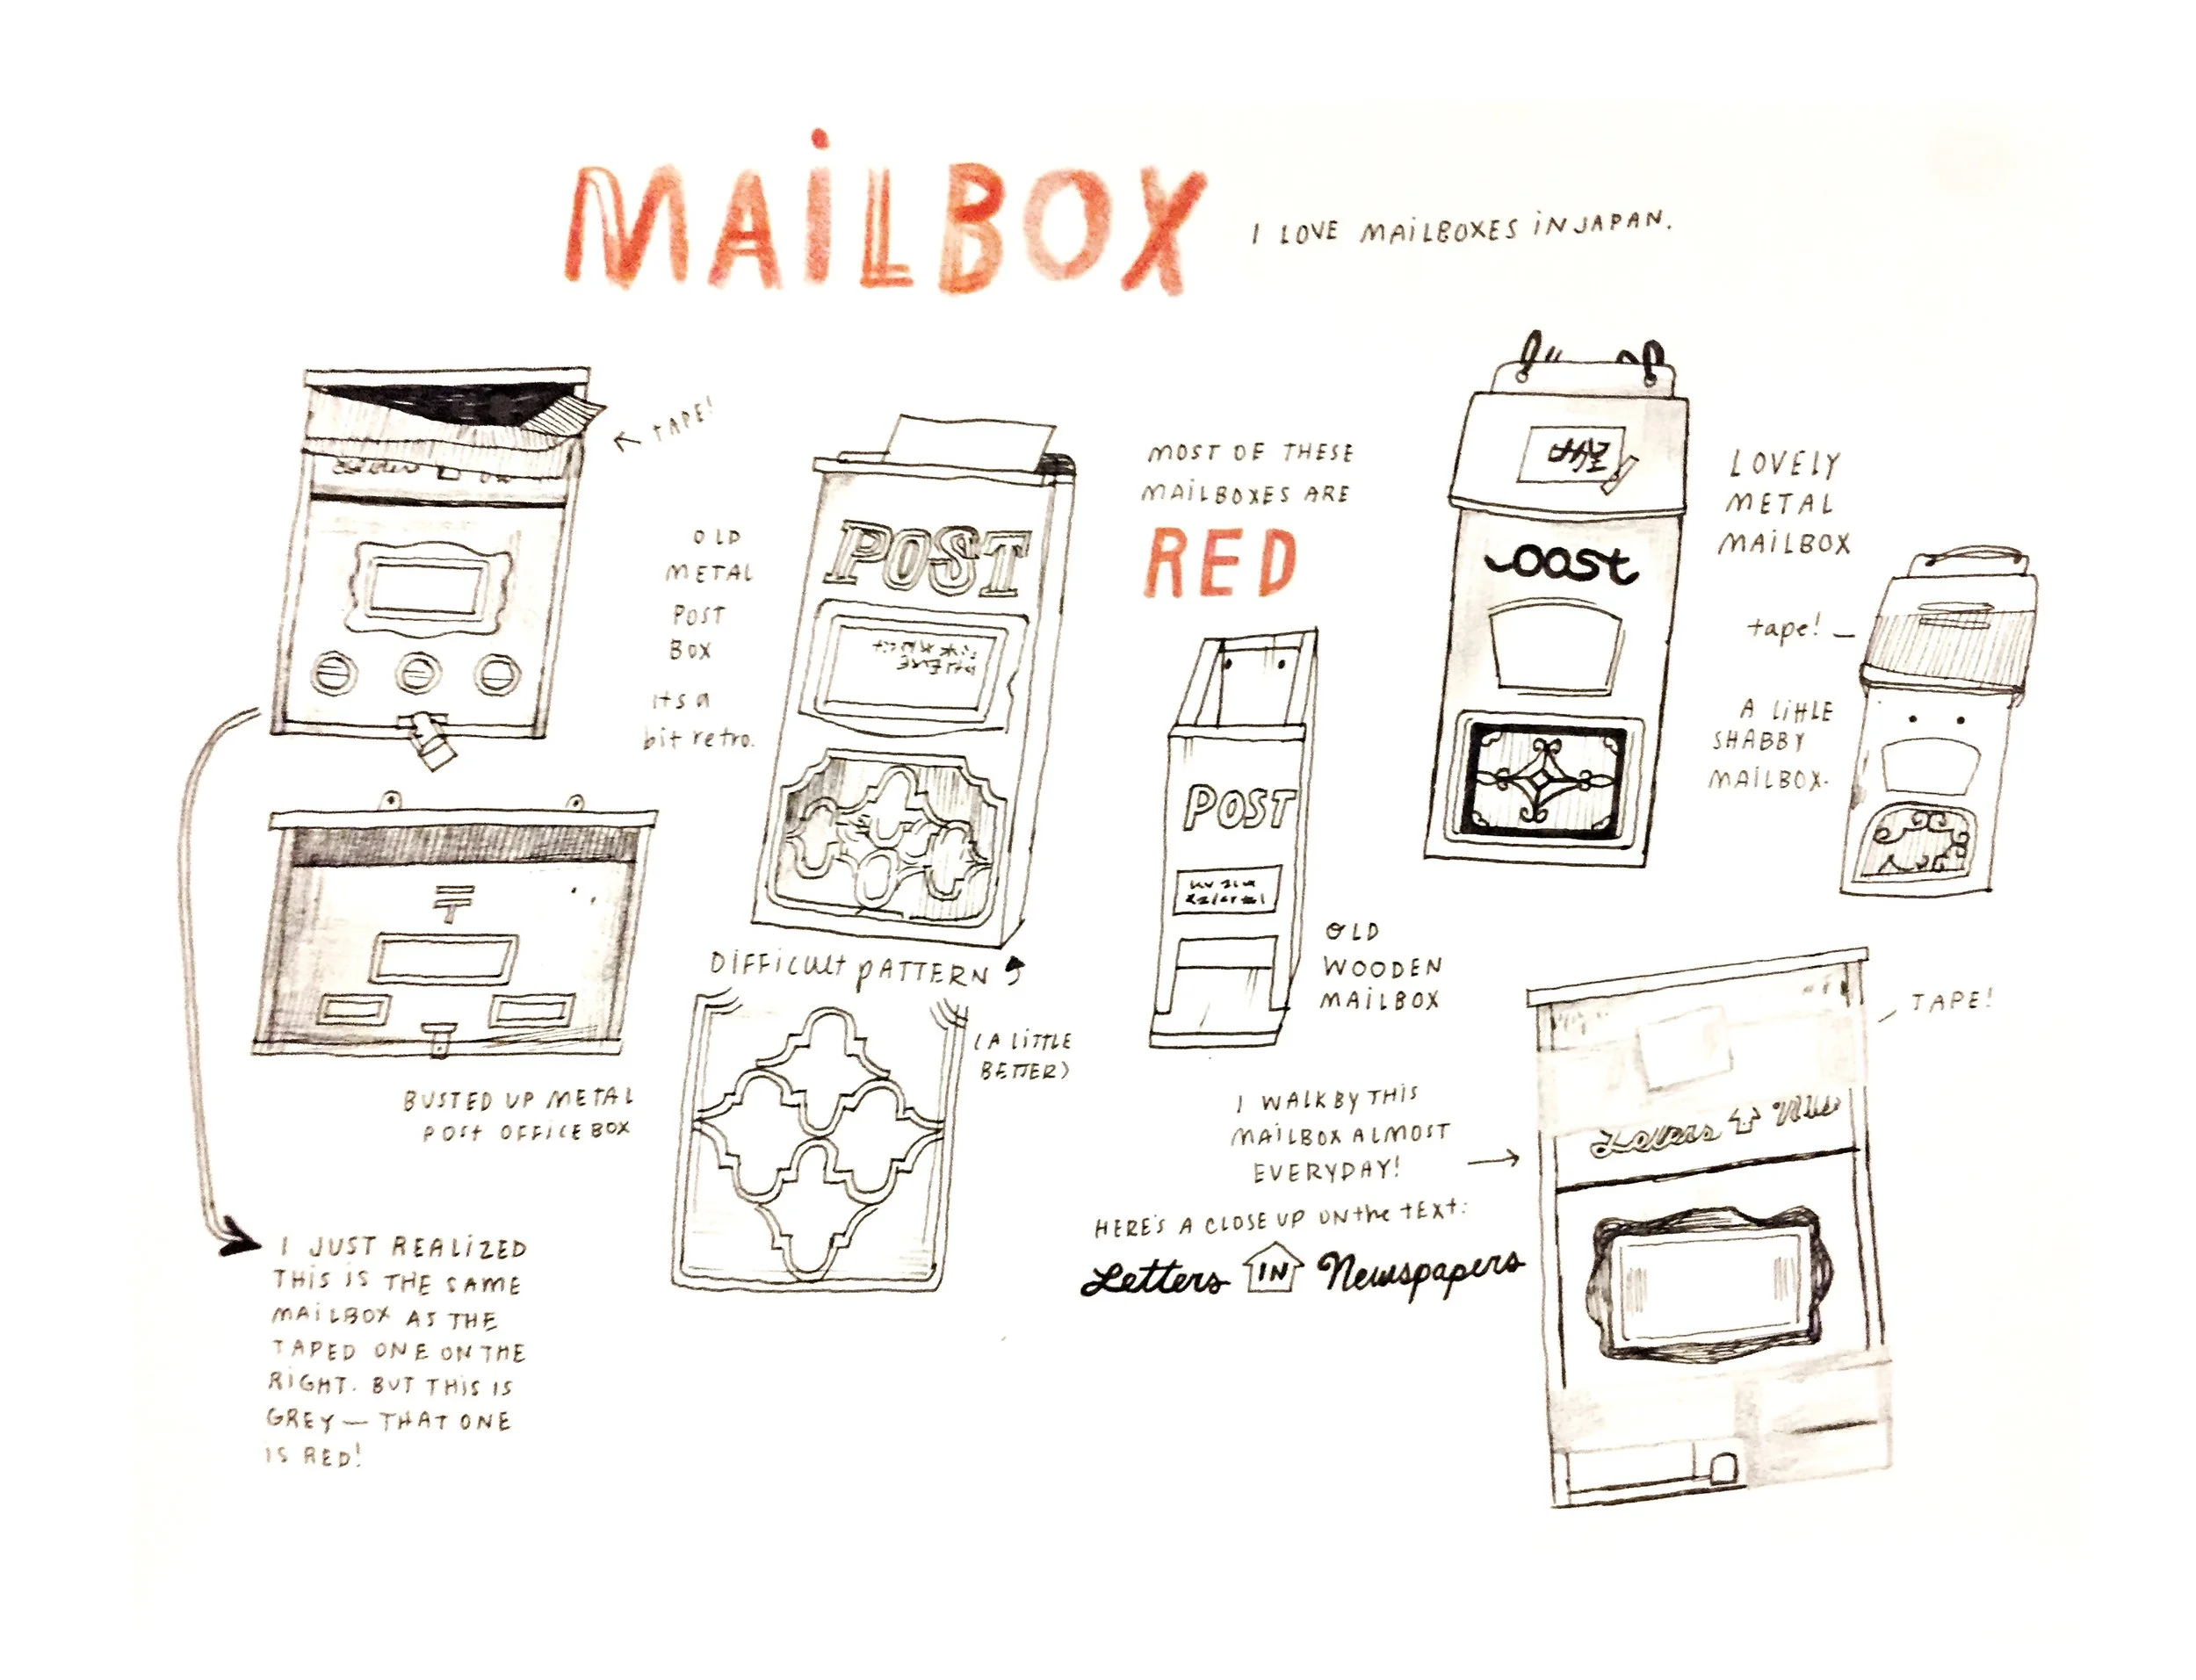 MAiLBOX
I LOVE MAiLBOXES iN JAPAN.
TAPE!
OLD
METAL
POST
BOX
its a
bit retro.
POST
MOST OF THESE
MAiLBOXES ARE
RED
oost
LOVELY
METAL
MAiLBOX
tape!
A LittLE
SHABBY
MAiLBOX.
POST
OLD
WOODEN
MAiLBOX
〒
BUSTED UP METAL
POSt OFFiCE BOX
DiFFicult pATTERN
(A LiTTLE
BETTER)
TAPE!
Letters
I WALK BY THiS
MAiLBOX ALMOST
EVERYDAY!
HERE'S A CLOSE UP ON the tEXt:
Letters IN Newspapers
I JUST REALiZED
THiS iS THE SAME
MAiLBOX AS THE
TAPED ONE ON THE
RiGHT. BUT THiS IS
GREY — THAT ONE
IS RED!